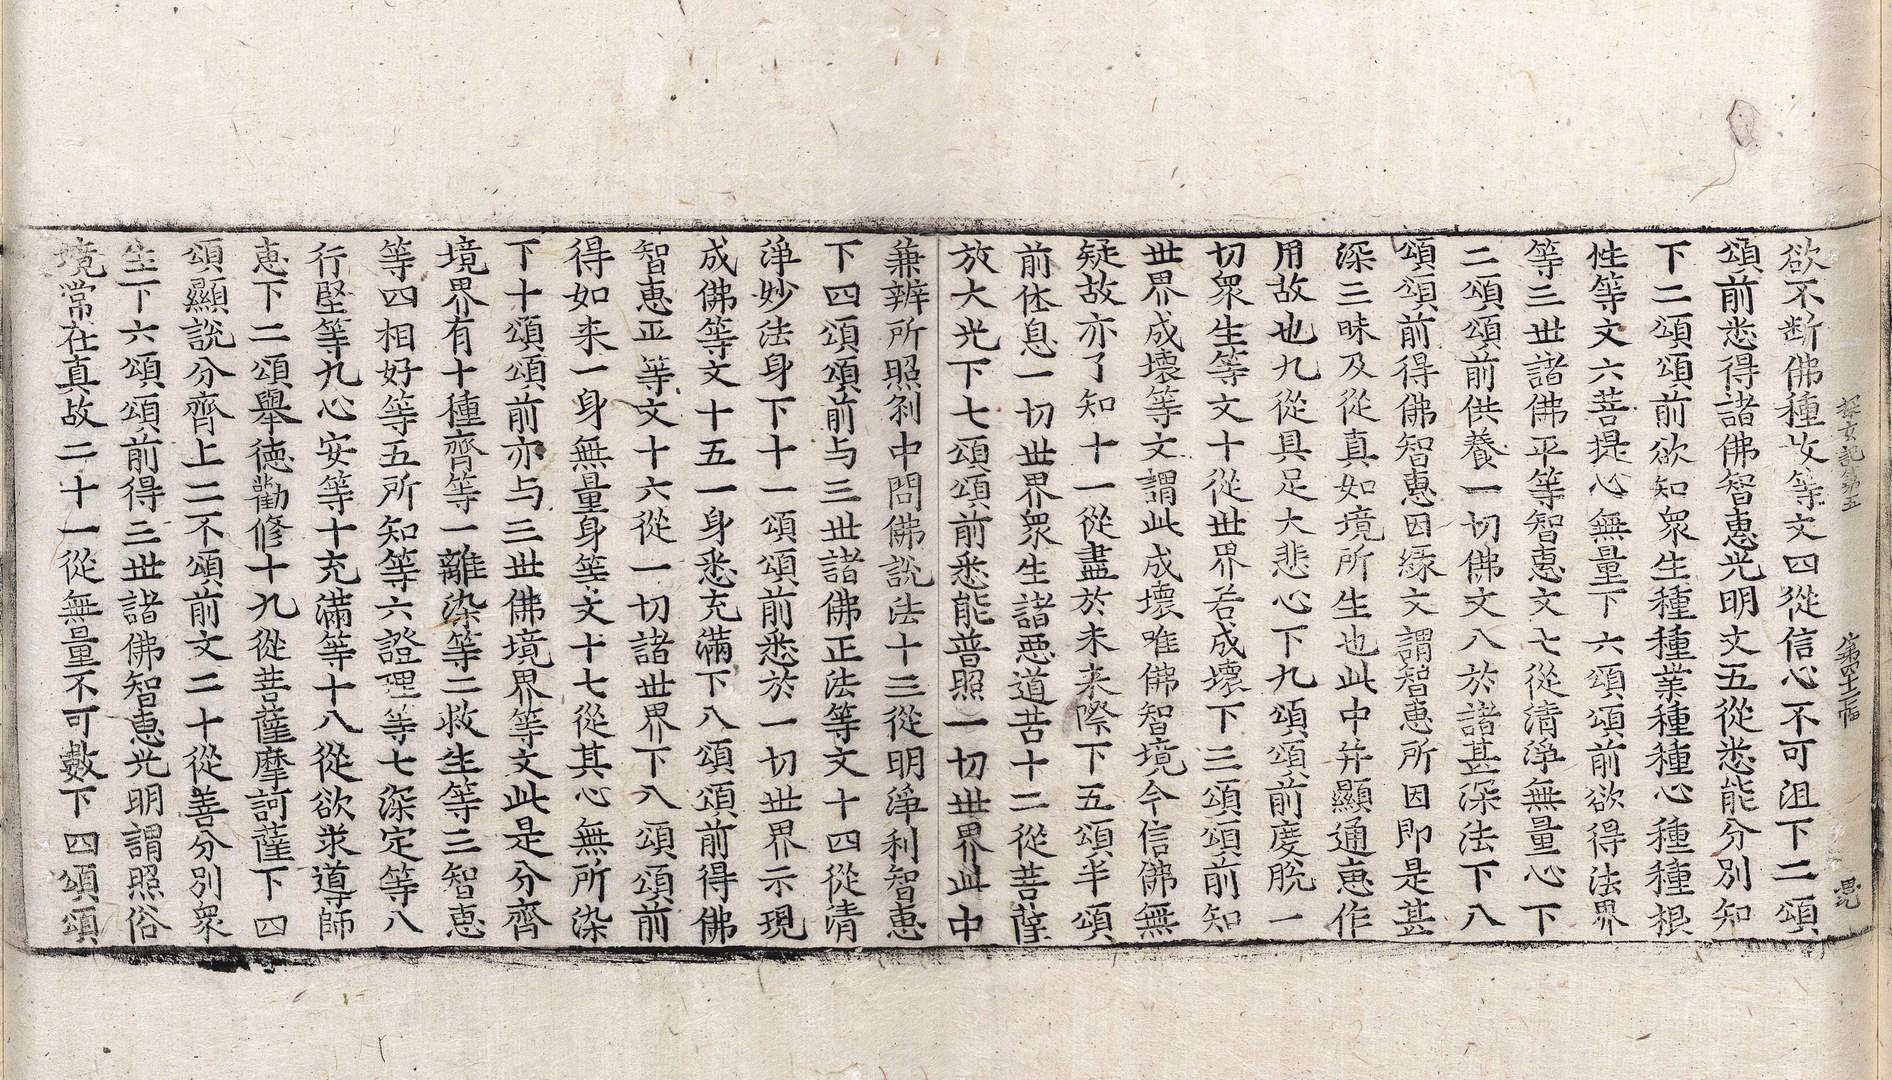 探玄記第五　第四十二幅　昆
欲不断佛種故等文四從信心不可沮下二頌
頌前悉得諸佛智惠光明文五從悉能分別知
下二頌頌前欲知衆生種種業種種心種種根
性等文六菩提心無量下六頌頌前欲得法界
等三世諸佛平等智惠文七從清淨無量心下
二頌頌前供養一切佛文八於諸甚深法下八
頌頌前得佛智惠因緣文謂智惠所因即是甚
深三昧及從真如境所生也此中弁顯通惠作
用故也九從具足大悲心下九頌頌前度脫一
切衆生等文十從世界若成壞下三頌頌前知
世界成壞等文謂此成壞唯佛智境今信佛無
疑故亦了知十一從盡於未来際下五頌半頌
前休息一切世界衆生諸惡道苦十二從菩薩
放大光下七頌頌前悉能普照一切世界此中
兼辨所照剎中問佛說法十三從明淨利智惠
下四頌頌前与三世諸佛正法等文十四從清
淨妙法身下十一頌頌前悉於一切世界示現
成佛等文十五一身悉充滿下八頌頌前得佛
智惠正等文十六從一切諸世界下八頌頌前
得如来一身無量身等文十七從其心無所染
下十頌頌前亦与三世佛境界等文此是分齊
境界有十種齊等一離染等二救生等三智惠
等四相好等五所知等六證理等七深定等八
行堅等九心安等十充滿等十八從欲求導師
惠下二頌舉德勸修十九從菩薩摩訶薩下四
頌顯說分齊上二不頌前文二十從善分別衆
生下六頌頌前得三世諸佛智惠光明謂照俗
境常在真故二十一從無量不可數下四頌頌